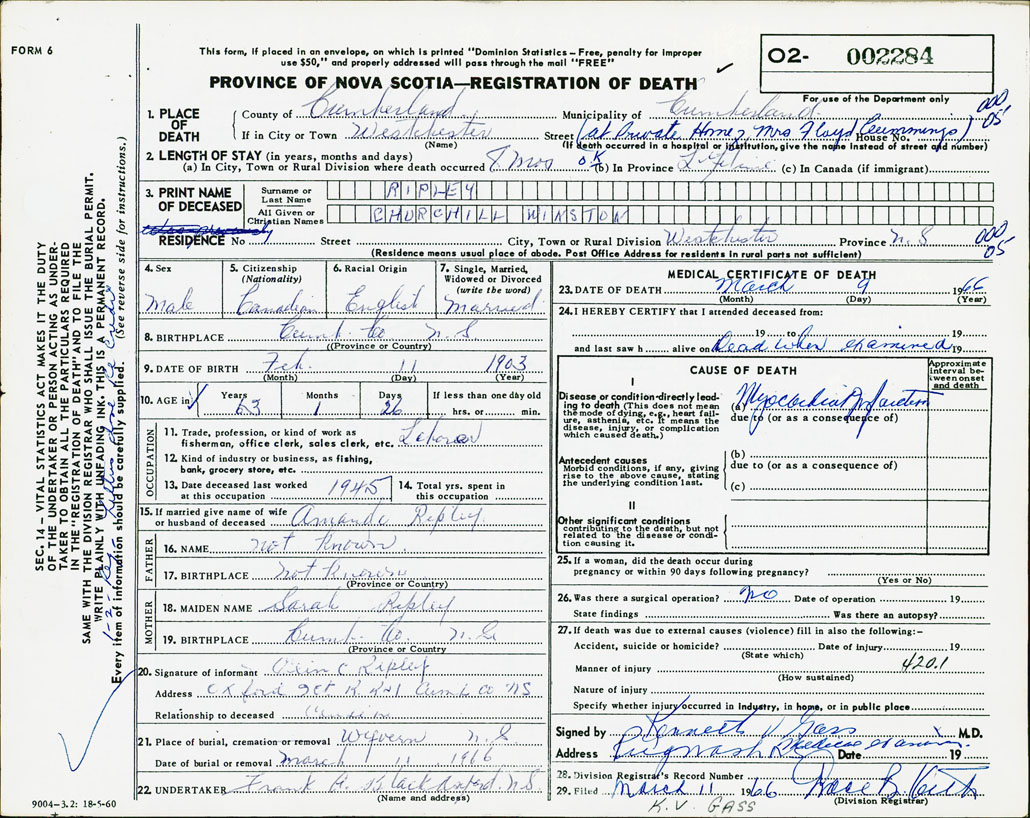 FORM 6
This form, if placed in an envelope, on which is printed "Dominion Statistics – Free, penalty for improper
use $50," and properly addressed will pass through the mail "FREE"
PROVINCE OF NOVA SCOTIA—REGISTRATION OF DEATH
02- 002284
For use of the Department only
000
05
1. PLACE OF DEATH
County of Cumberland Municipality of Cumberland
If in City or Town Westchester Street (at Private Home, Mrs Floyd Cummings) House No.
(Name) (If death occurred in a hospital or institution, give the name instead of street and number)
2. LENGTH OF STAY (in years, months and days)
(a) In City, Town or Rural Division where death occurred 8 mos OK (b) In Province Lifetime (c) In Canada (if immigrant)
3. PRINT NAME OF DECEASED
Surname or Last Name RIPLEY
All Given or Christian Names CHURCHILL WINSTON
RESIDENCE No Street City, Town or Rural Division Westchester Province N.S 000 05
(Residence means usual place of abode. Post Office Address for residents in rural parts not sufficient)
4. Sex Male
5. Citizenship (Nationality) Canadian
6. Racial Origin English
7. Single, Married, Widowed or Divorced (write the word) Married
8. BIRTHPLACE Cumb. Co N.S
(Province or Country)
9. DATE OF BIRTH Feb. 11 1903
(Month) (Day) (Year)
10. AGE in Years 63 Months 1 Days 26 If less than one day old hrs. or min.
OCCUPATION
11. Trade, profession, or kind of work as fisherman, office clerk, sales clerk, etc. Laborer
12. Kind of industry or business, as fishing, bank, grocery store, etc.
13. Date deceased last worked at this occupation 1945
14. Total yrs. spent in this occupation
15. If married give name of wife or husband of deceased Amanda Ripley
FATHER
16. NAME Not Known
17. BIRTHPLACE Not Known
(Province or Country)
MOTHER
18. MAIDEN NAME Sarah Ripley
19. BIRTHPLACE Cumb. Co. N.S
(Province or Country)
20. Signature of informant C Ripley
Address Oxford Jct R.R#1 Cumb Co NS
Relationship to deceased
21. Place of burial, cremation or removal Wyvern N.S
Date of burial or removal March 11 1966
22. UNDERTAKER Frank A. Black Oxford N.S
(Name and address)
9004-3.2: 18-5-60
MEDICAL CERTIFICATE OF DEATH
23. DATE OF DEATH March 9 1966
(Month) (Day) (Year)
24. I HEREBY CERTIFY that I attended deceased from:
19 to 19
and last saw h alive on Dead when examined 19
CAUSE OF DEATH
Approximate interval between onset and death
I
Disease or condition directly leading to death (This does not mean the mode of dying, e.g., heart failure, asthenia, etc. It means the disease, injury, or complication which caused death.)
(a) Myocardial Infarction
due to (or as a consequence of)
Antecedent causes
Morbid conditions, if any, giving rise to the above cause, stating the underlying condition last.
(b)
due to (or as a consequence of)
(c)
II
Other significant conditions
contributing to the death, but not related to the disease or condition causing it.
25. If a woman, did the death occur during pregnancy or within 90 days following pregnancy?
(Yes or No)
26. Was there a surgical operation? No Date of operation 19
State findings Was there an autopsy?
27. If death was due to external causes (violence) fill in also the following:–
Accident, suicide or homicide? Date of injury 19
(State which)
Manner of injury 420.1
(How sustained)
Nature of injury
Specify whether injury occurred in industry, in home, or in public place
Signed by Kenneth V Gass M.D.
Address Pugwash Medical examiner Date 19
28. Division Registrar's Record Number
29. Filed March 11 1966 B. Keith
(Division Registrar)
K.V. GASS
SEC. 14 – VITAL STATISTICS ACT MAKES IT THE DUTY
OF THE UNDERTAKER OR PERSON ACTING AS UNDER-
TAKER TO OBTAIN ALL THE PARTICULARS REQUIRED
IN THE "REGISTRATION OF DEATH" AND TO FILE THE
SAME WITH THE DIVISION REGISTRAR WHO SHALL ISSUE THE BURIAL PERMIT.
WRITE PLAINLY WITH UNFADING INK. THIS IS A PERMANENT RECORD.
Every item of information should be carefully supplied. (See reverse side for instructions.)